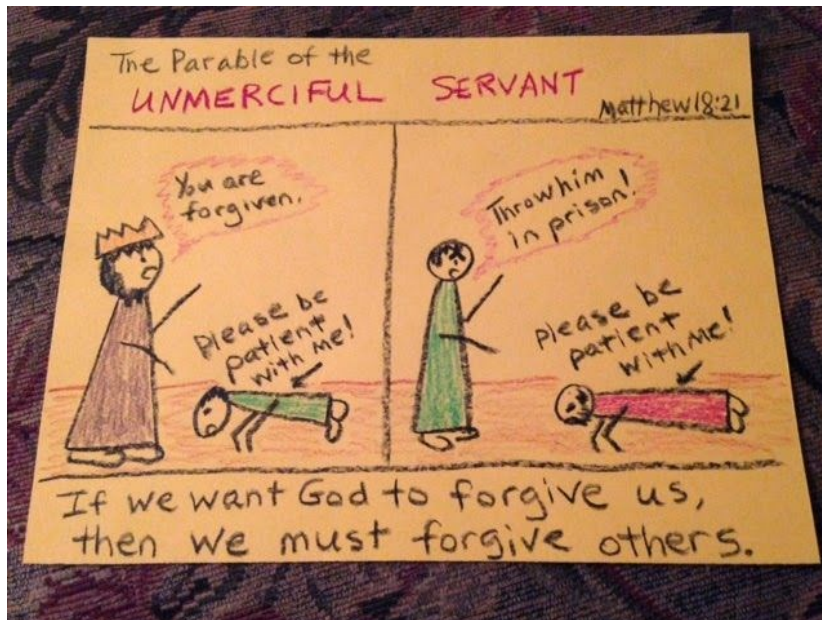 The Parable of the
UNMERCIFUL SERVANT
Matthew 18:21
You are
forgiven.
Please be
patient
with me!
Throw him
in prison!
Please be
patient
with me!
If we want God to forgive us,
then we must forgive others.